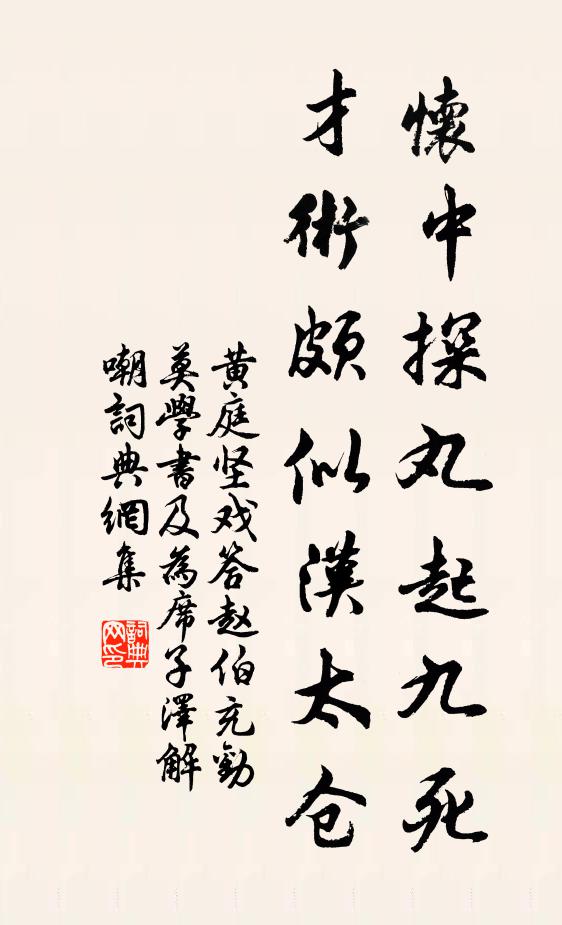 懷中探丸起九死
才術頗似漢太仓
黄庭坚戏答赵伯充勸
莫學書及為席子澤解
嘲詞典網集
詞典网印